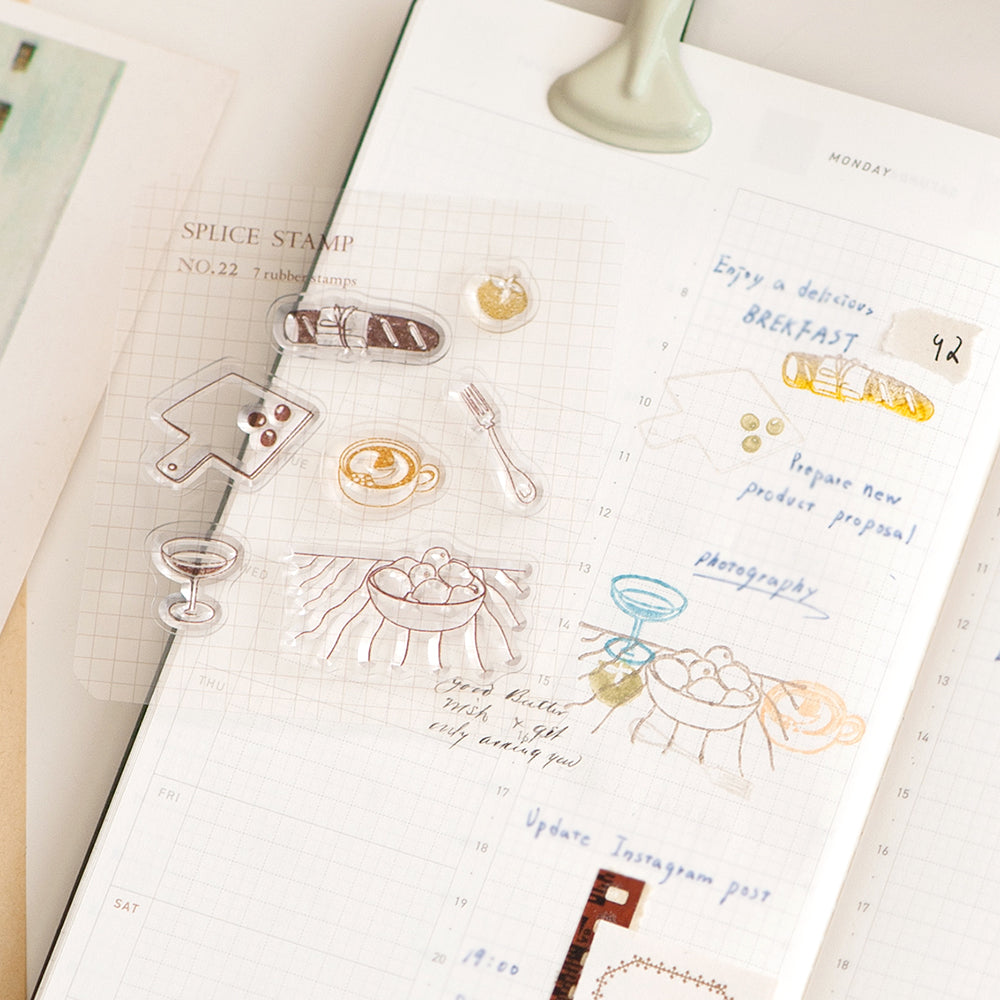 SPLICE STAMP
NO.22 7 rubber stamps
MONDAY
Enjoy a delicious
BREKFAST
42
8
9
10
11
12
13
14
15
17
18
19
20
Prepare new
product proposal
photography
TUE
WED
THU
FRI
SAT
good
only
you
Update Instagram post
19:00
11
12
13
14
15
16
17
18